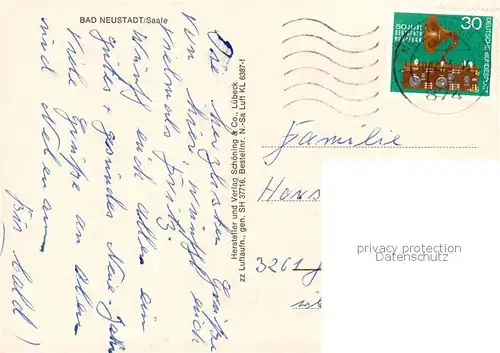 BAD NEUSTADT/Saale
Die herzlichsten Grüße
von hier, wünscht euch
vielmals Fritz.
Wünsch euch allen ein
gutes + gesundes Neue Jahr
Viele Grüße an allen
und
Bis bald!
Hersteller und Verlag Schöning & Co., Lübeck
zz Luftaufn., gen. SH 37716. Bestellnr. N.-Sa Luft KL 6387-f
30
50 JAHRE
DEUTSCHE BUNDESPOST
Familie
Hans
3261
privacy protection
Datenschutz